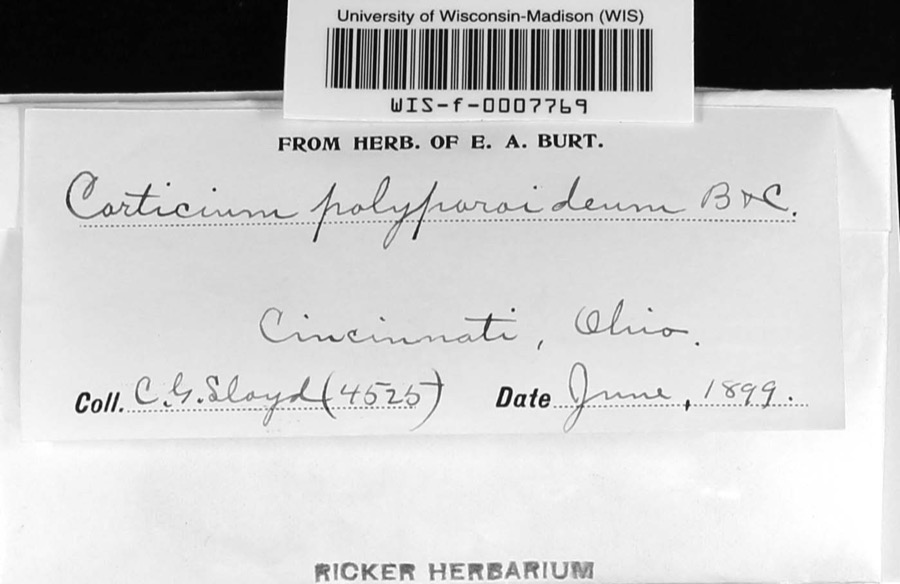 University of Wisconsin-Madison (WIS)
WIS-f-0007769
FROM HERB. OF E. A. BURT.
Corticium polyporoideum B & C.
Cincinnati, Ohio.
Coll. C. G. Lloyd (4525) Date June, 1899.
RICKER HERBARIUM